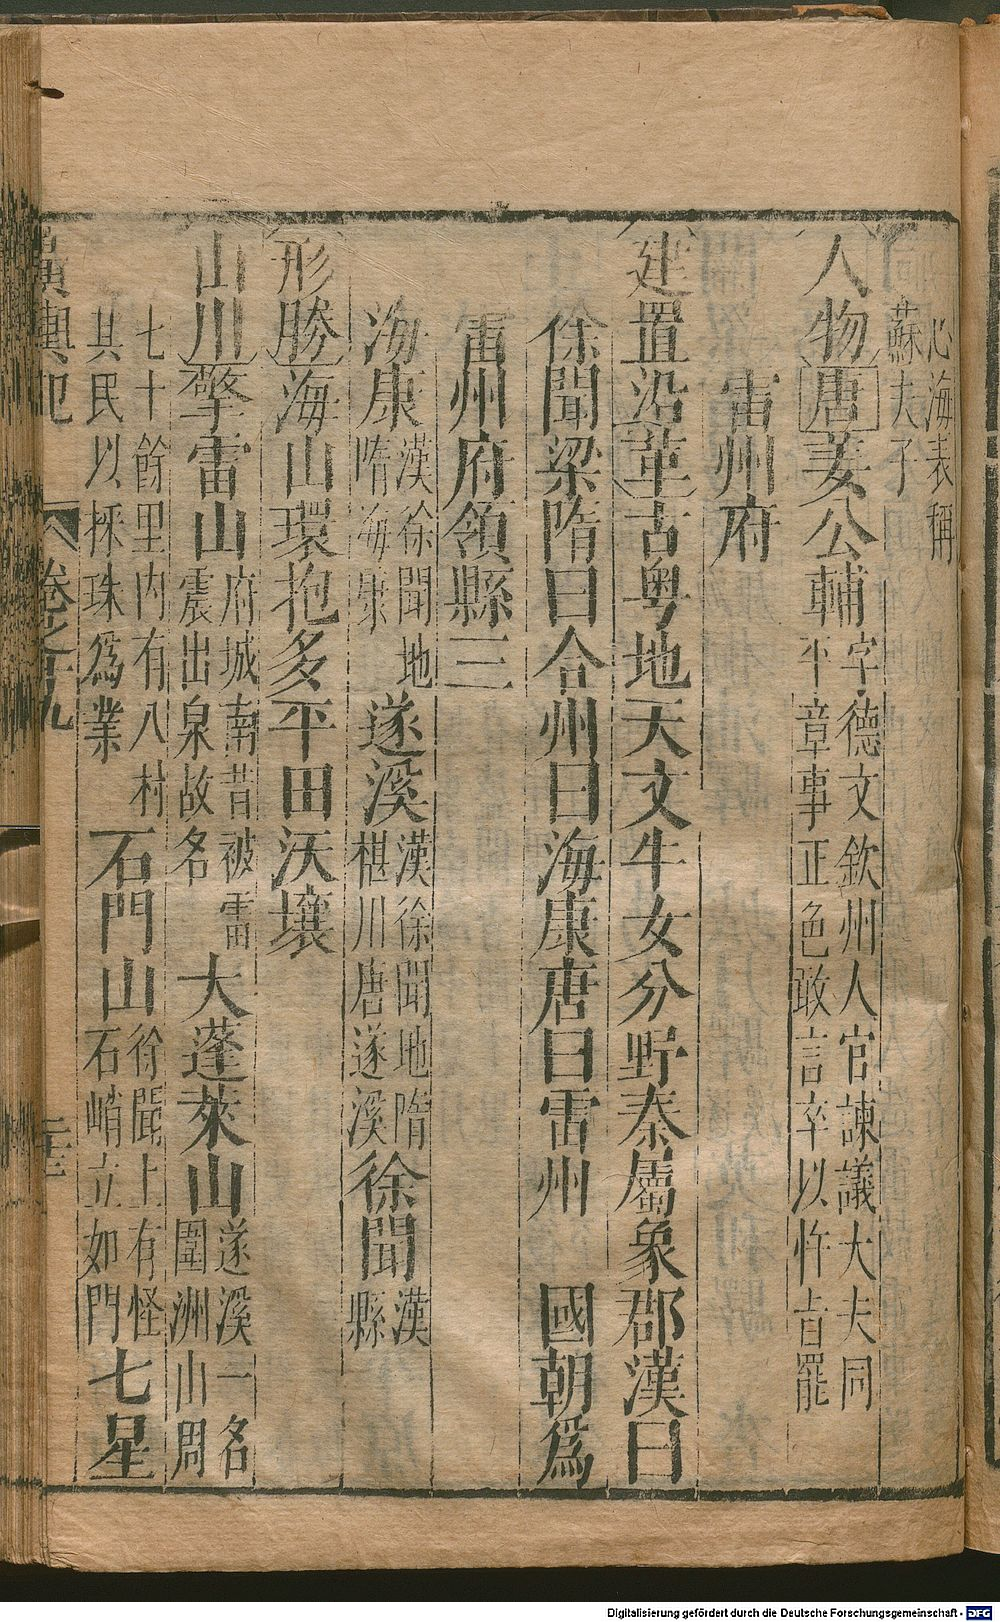 心海表稱
蘇夫子
人物唐姜公輔字德文欽州人官諫議大夫同
平章事正色敢言卒以忤旨罷
雷州府
建置沿革古粵地天文牛女分野秦屬象郡漢曰
徐聞梁隋曰合州曰海康唐曰雷州 國朝爲
雷州府領縣三
海康漢徐聞地
隋海康
遂溪漢徐聞地隋
椹川唐遂溪
徐聞漢
縣
形勝海山環抱多平田沃壤
山川擎雷山府城南昔被雷
震出泉故名
大蓬萊山遂溪一名
圍洲山周
七十餘里内有八村
其民以採珠爲業
石門山徐聞上有怪
石峭立如門
七星
廣輿記 卷之十九 二十三
Digitalisierung gefördert durch die Deutsche Forschungsgemeinschaft - DFG